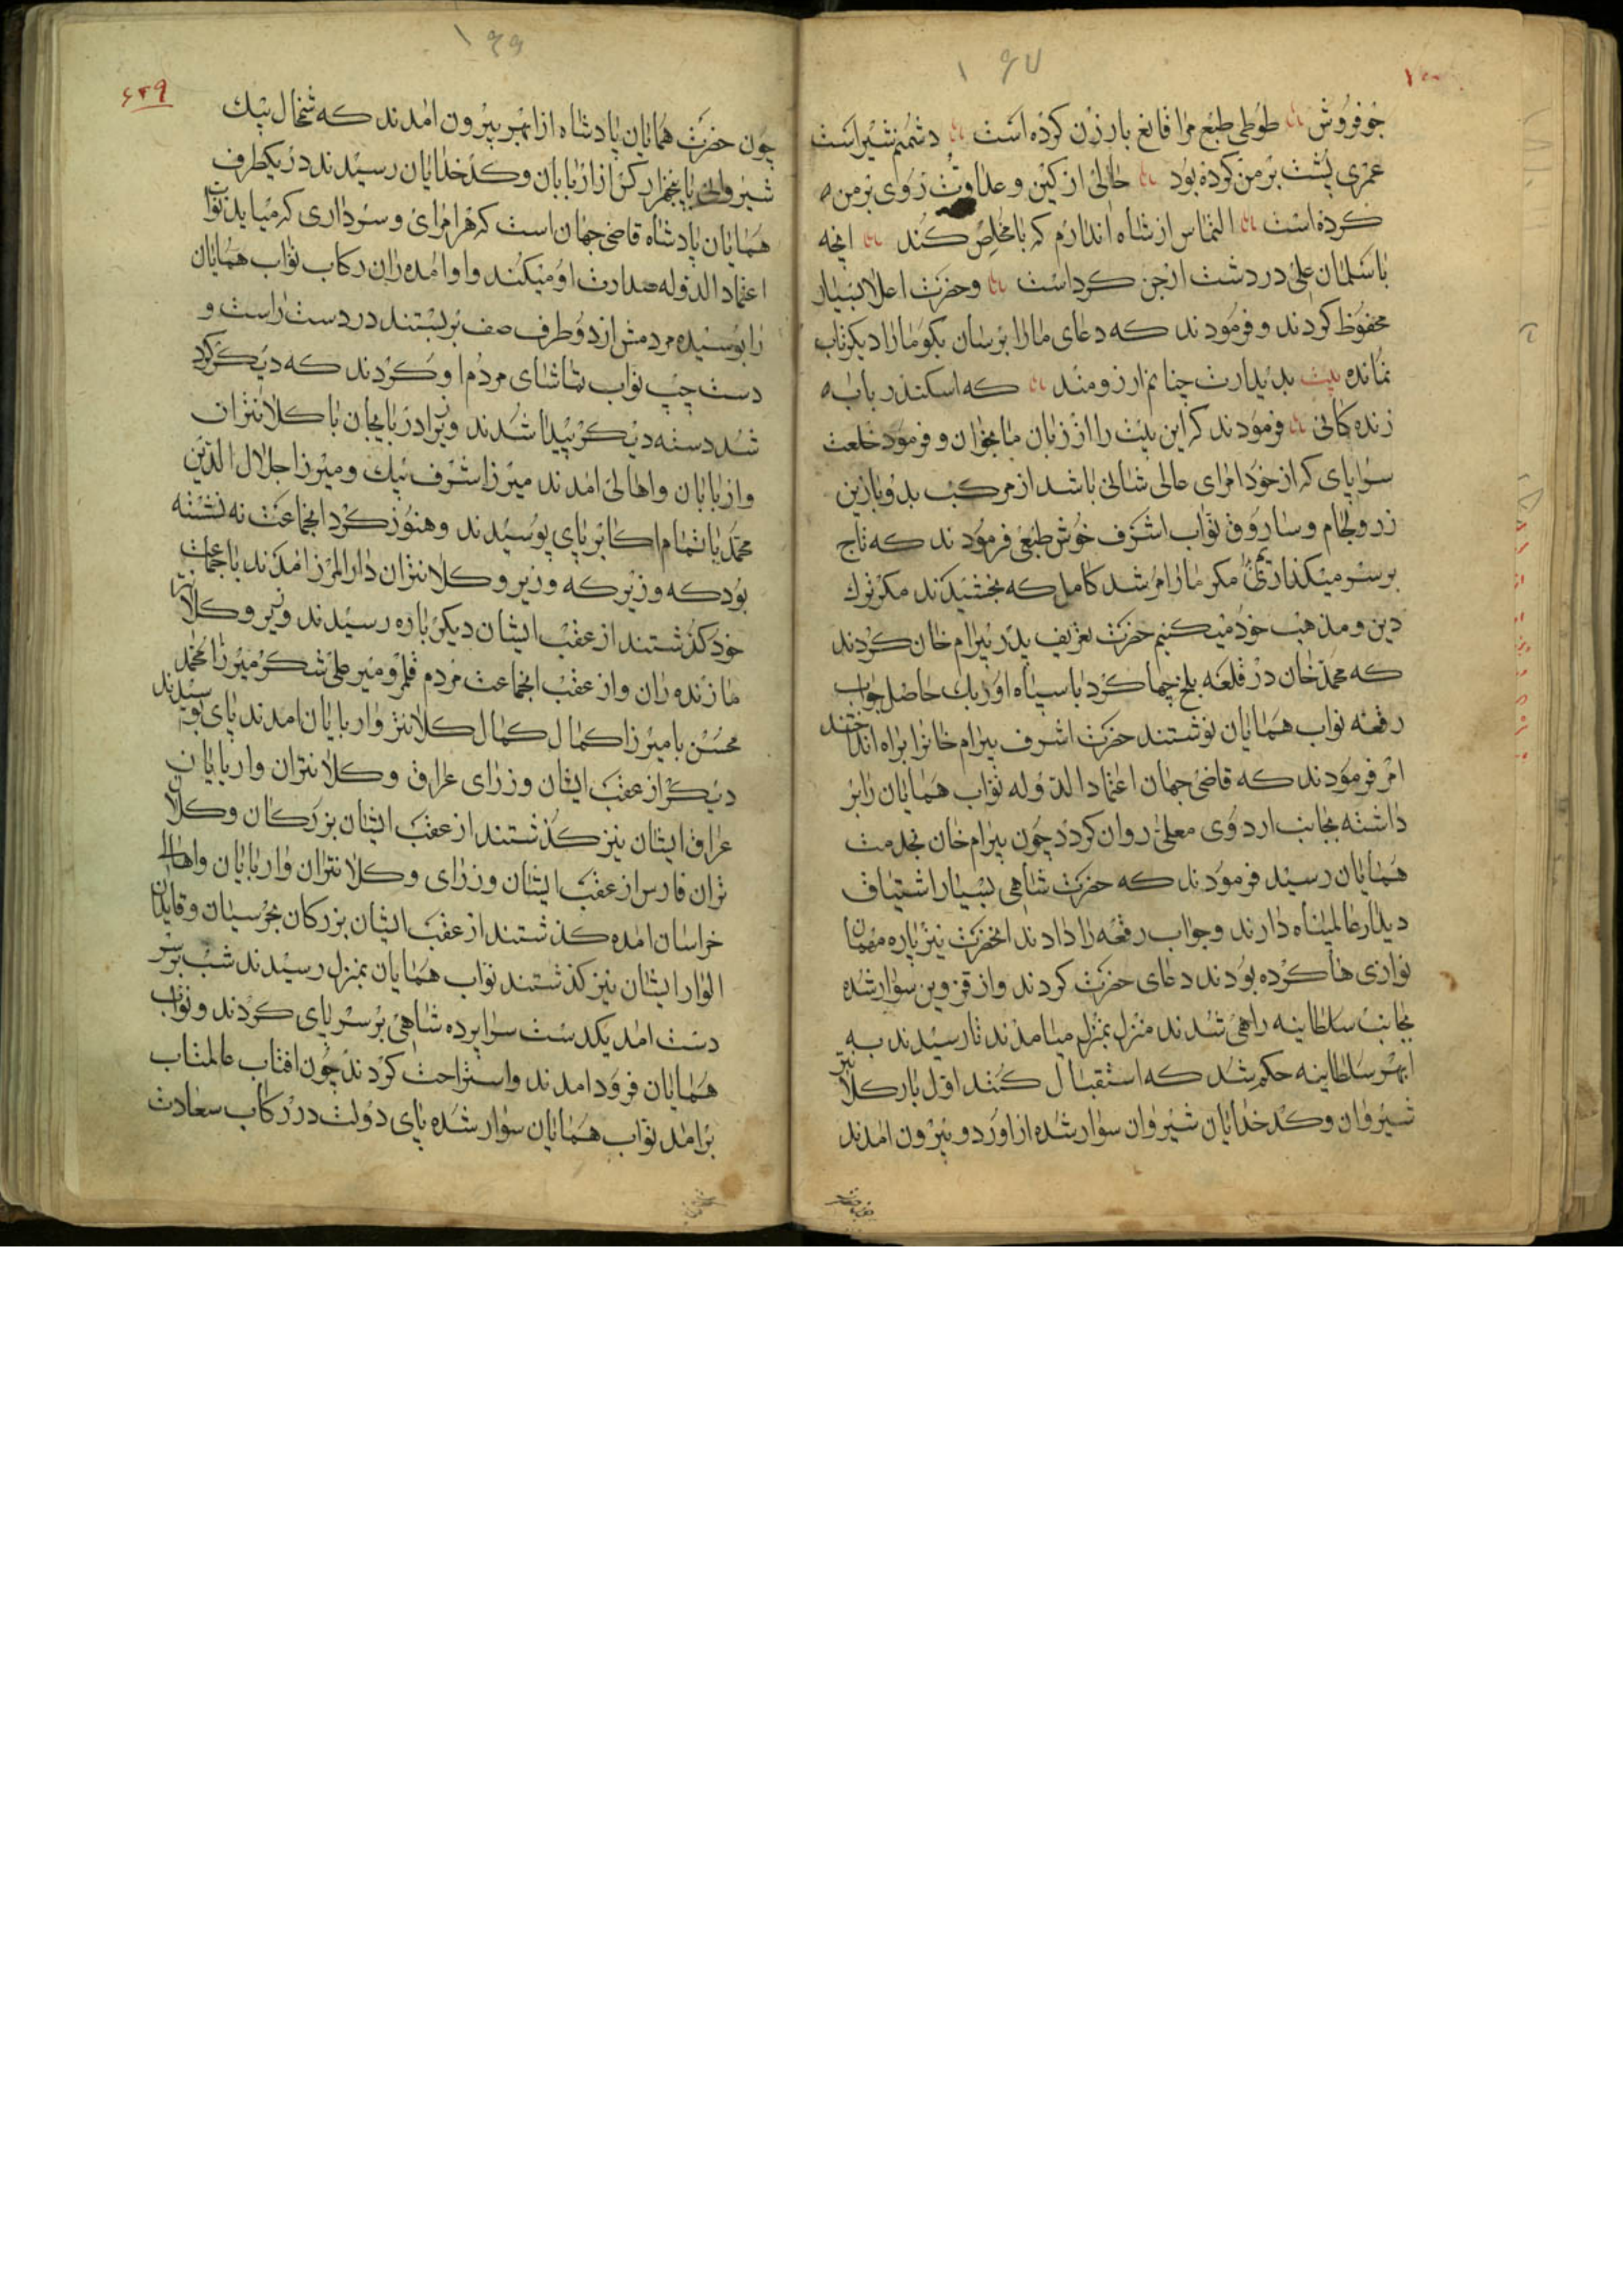 ۱۶۷
جوفروش طوطی طبع مرا قانع بارزن کرده است دشمنم شیراست
عمری پشت بر من کرده بود خالی از کین و عداوت روی بر من
کرده است التماس از شاه اندارم که با مخلص کند انچه
با سلمان علی در دشت ارجن کرداست وحضرت اعلا بسیار
محفوظ کردند و فرمودند که دعای ما را برسان بکو ما را دیکر تاب
نمانده بیت بدیدارت چنانم ارزومند که اسکندر باب
زنده کانی فرمودند که این بیت را از زبان ما بخوان و فرمود خلعت
سراپای که از خود امرای عالی شانی باشد از مرکب بدو بازین
زر ولجام وساروق نواب اشرف خوش طبعی فرمودند که تاج
بر سر میکذاری مکر ما را مرشد کامل که بخشیدند مکر ترک
دین و مذهب خود میکنیم حضرت تعریف پدر بیرام خان کردند
که محمد خان در قلعه بلخ چها کرد با سپاه اوزبک حاضل جواب
رقعه نواب همایان نوشتند حضرت اشرف بیرام خانرا براه انداختند
امر فرمودند که قاضی جهان اعتماد الدوله نواب همایان را بر
داشته بجانب اردوی معلی روان کردد چون بیرام خان بخدمت
همایان رسید فرمودند که حضرت شاهی بسیار اشتیاق
دیدار عالمپناه دارند وجواب رقعه را دادند انحضرت نیز پاره مهمان
نوازی ها کرده بودند دعای حضرت کردند واز قزوین سوار شده
بجانب سلطانیه راهی شدند منزل بمنزل میامدند تا رسیدند به
ابهر سلطانیه حکم شد که استقبال کنند اول بار کلانتر
شیروان وکدخدایان شیروان سوار شده از اوردو بیرون امدند
۱۶۶
۶۴۹
چون حضرت همایان پادشاه از ابهر بیرون امدند که شمخال بیک
شیروانی با پنجهزار کس از اربابان وکدخدایان رسیدند در یکطرف
همایان پادشاه قاضی جهان است که هر امرای وسرداری که میاید نواب
اعتماد الدوله صدارت او میکند واو امده ران رکاب نواب همایان
را بوسیده مردمش از دو طرف صف بربستند در دست راست و
دست چپ نواب تماشای مردم او کردند که دیکر کرد
شد دسته دیکر پیدا شدند وزیر ادربایجان با کلانتران
واربابان واهالی امدند میرزا شرف بیک ومیرزا جلال الدین
محمد با تمام اکابر پای بوسیدند وهنوز کرد انجماعت نه نشسته
بود که وزیر که وزیر وکلانتران دارالمرز امدند با جماعت
خود کذشتند از عقب ایشان دیکر باره رسیدند وزیر وکلانتر
مازنده ران واز عقب انجماعت مردم قلمرو میر علی شکر میرزا محمد
محسن با میرزا کمال کمال کلانتر واربابان امدند پای بوسیدند
دیکر از عقب ایشان وزرای عراق وکلانتران واربابان
عراق ایشان نیز کذشتند از عقب ایشان بزرکان وکلان
تران فارس از عقب ایشان وزرای وکلانتران واربابان واهالی
خراسان امده کذشتند از عقب ایشان بزرکان بحرسیان وقایدان
الوار ایشان نیز کذشتند نواب همایان بمنزل رسیدند شب بر سر
دست امد یکدست سراپرده شاهی بر سر پای کردند ونواب
همایان فرود امدند واستراحت کردند چون افتاب عالمتاب
برامد نواب همایان سوار شده پای دولت در رکاب سعادت